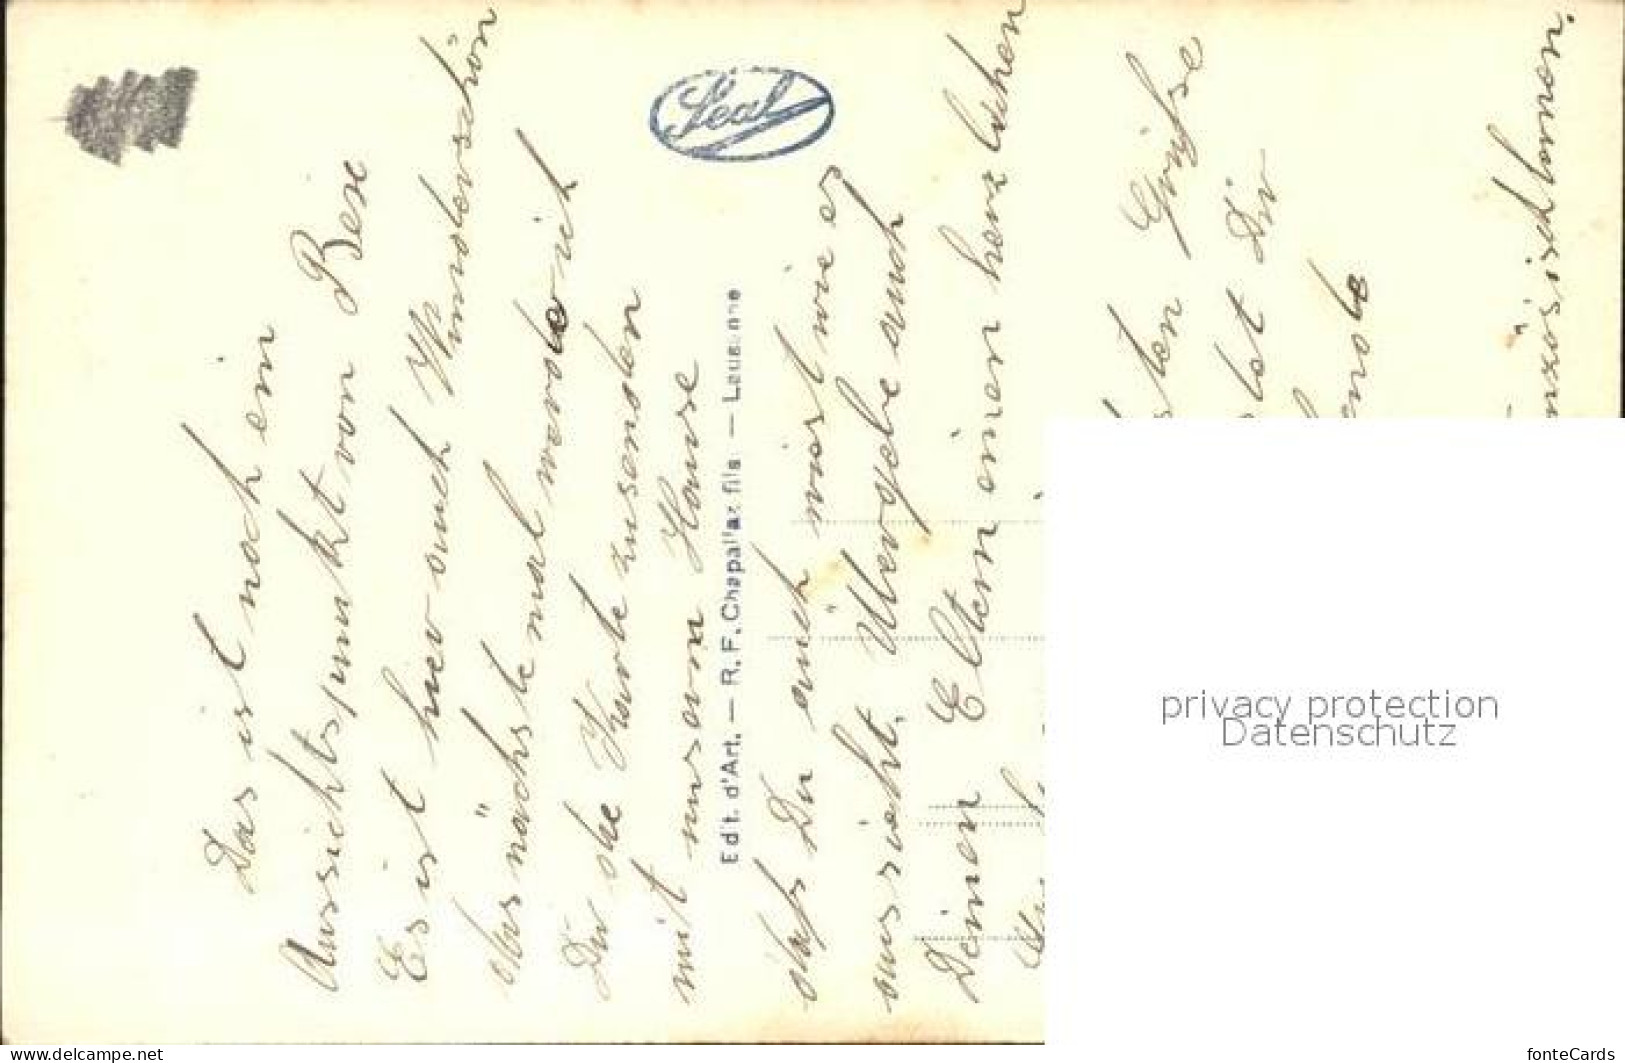 Das ist noch ein
Aussichtspunkt von Bex
Es ist hier auch Wunderschön
das nächste mal werde ich
Dir die Karte zusenden
mit unserm Hause
Edit. d'Art. — R. F. Chapallaz fils — Lausanne
Seal
daß Du auch wiest wie es
aussieht. Übergebe auch
Deinen Eltern einen herzlichen
ten Grüße
tet Dir
nzösisch lernen.
privacy protection
Datenschutz
www.delcampe.net
fonteCards